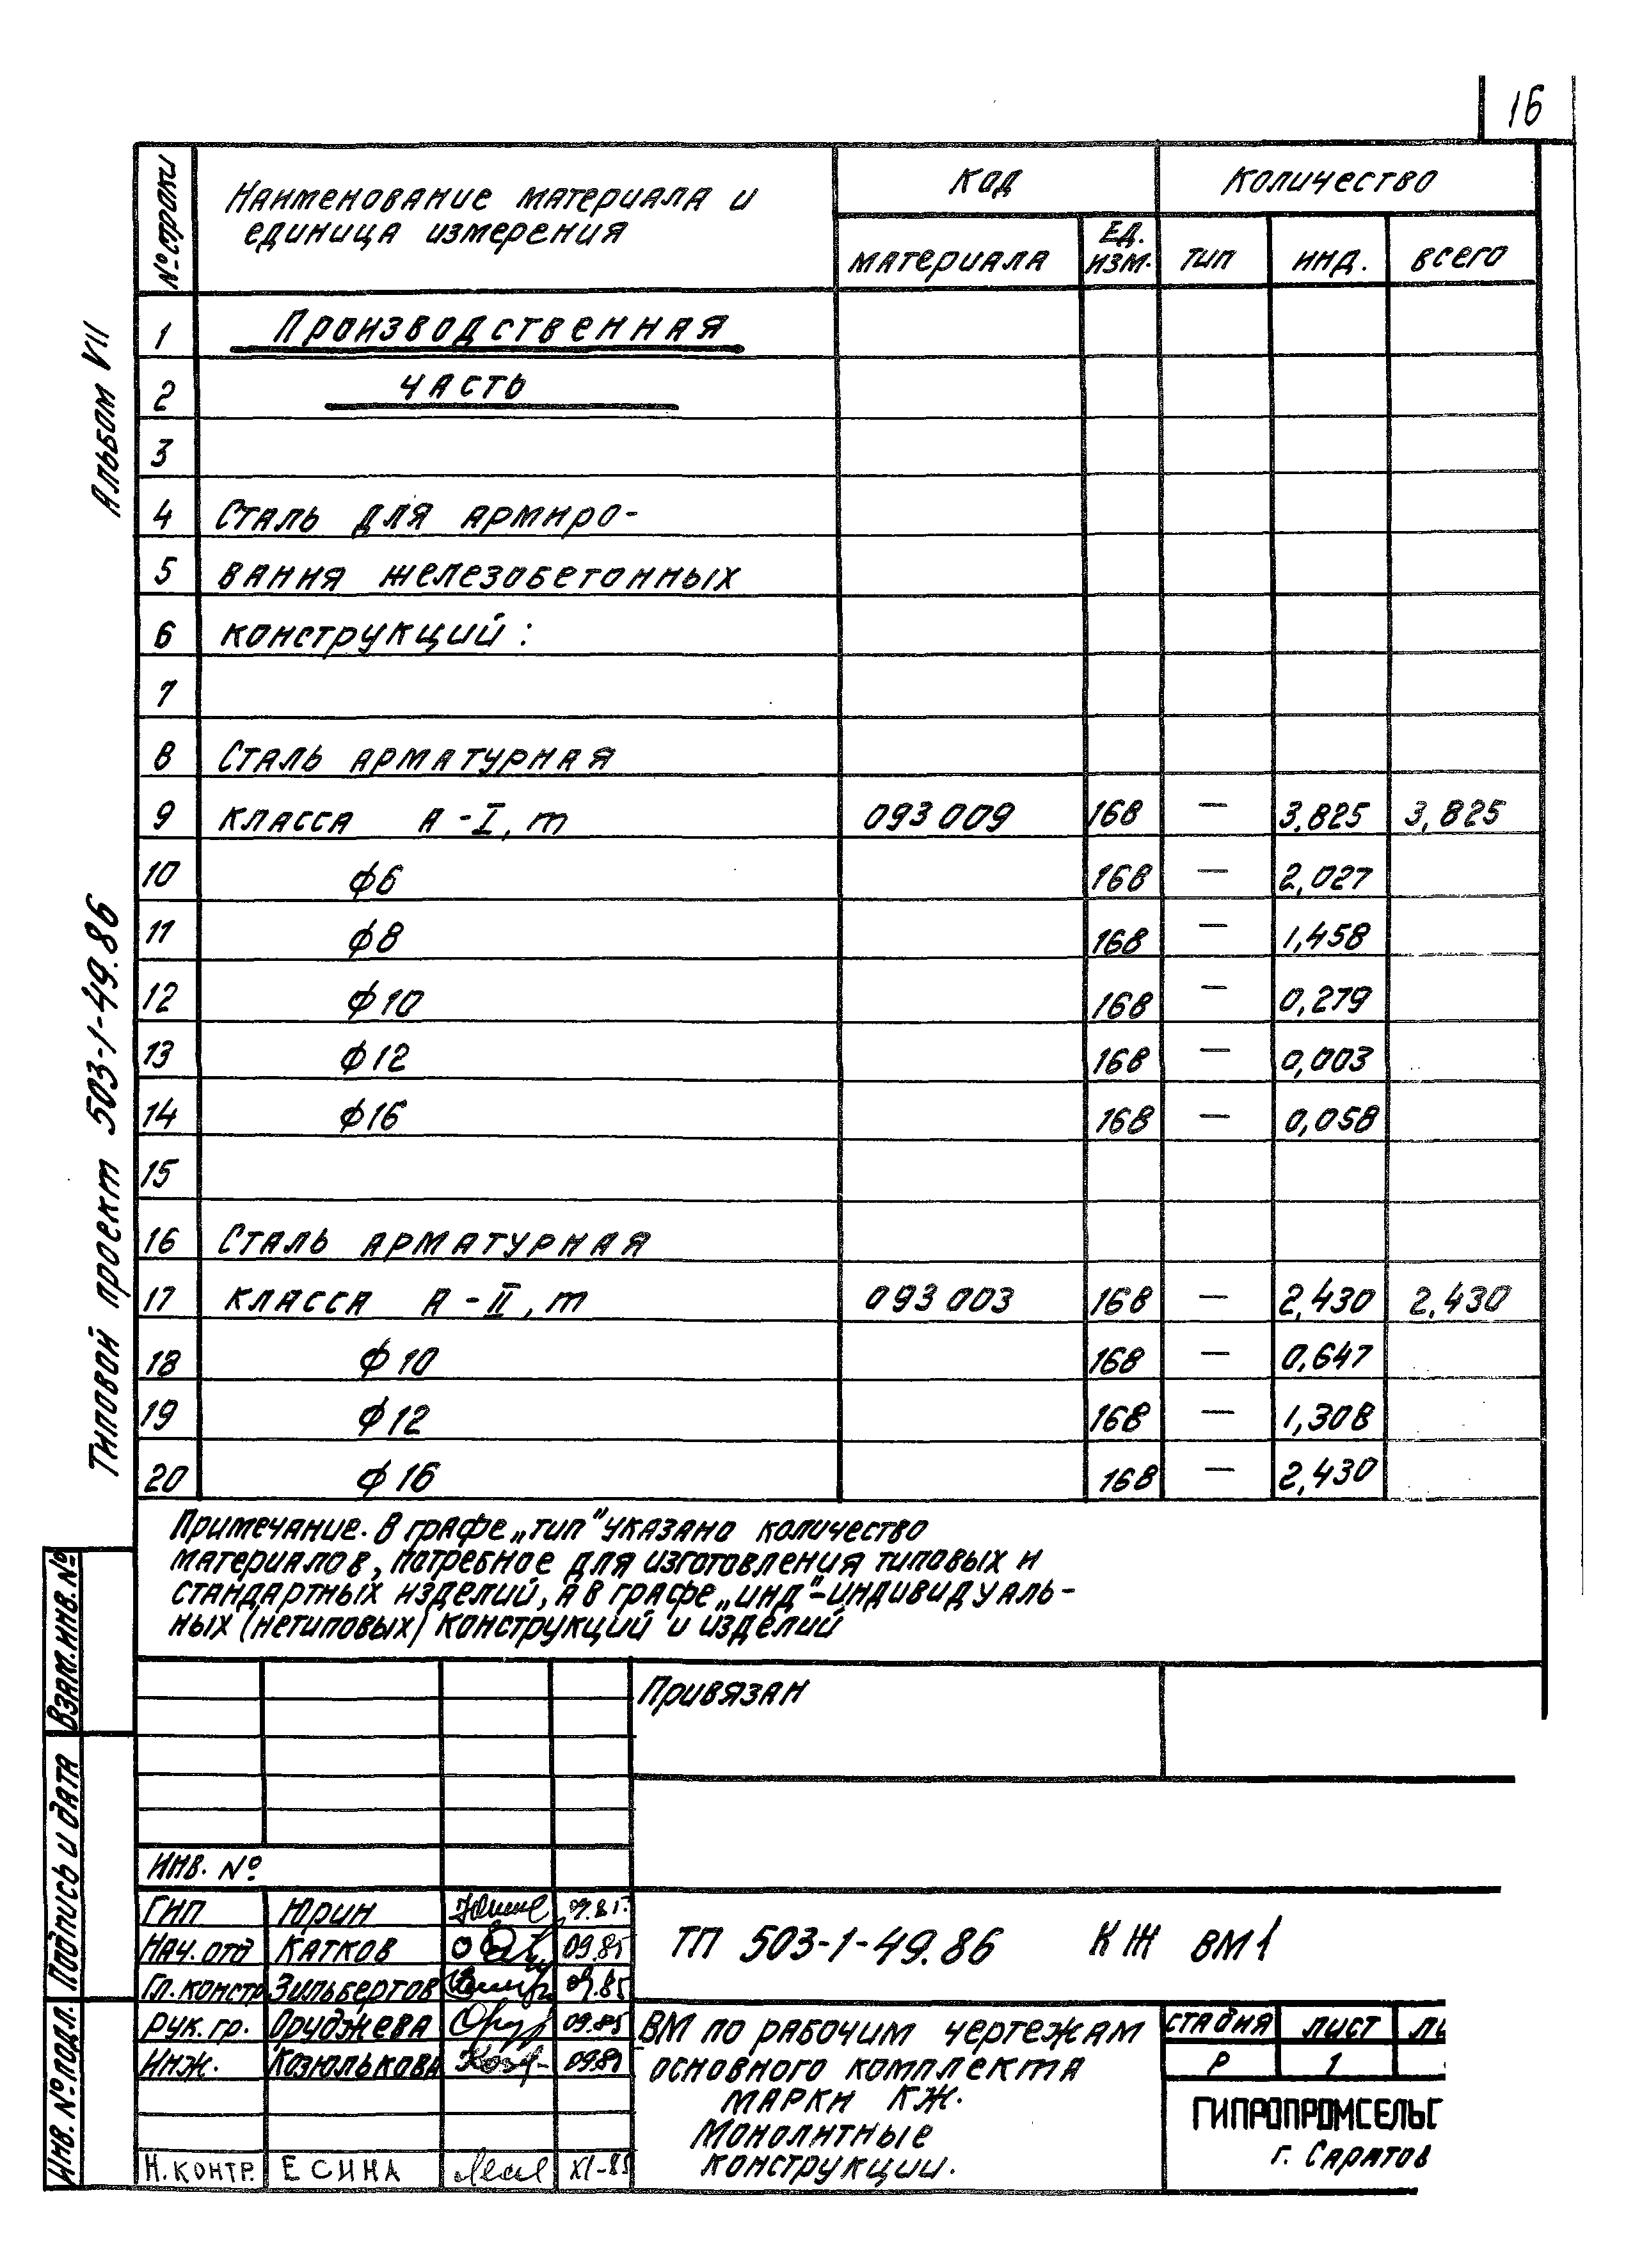 16
№ строки
Наименование материала и
единица измерения
Код
Количество
материала
Ед.
изм.
тип
инд.
всего
1 Производственная
2 часть
3
4 Сталь для армиро-
5 вания железобетонных
6 конструкций:
7
8 Сталь арматурная
9 класса А-I, т 093009 168 — 3.825 3,825
10 ф6 168 — 2,027
11 ф8 168 — 1,458
12 ф10 168 — 0,279
13 ф12 168 — 0,003
14 ф16 168 — 0,058
15
16 Сталь арматурная
17 класса А-II, т 093003 168 — 2,430 2,430
18 ф10 168 — 0,647
19 ф12 168 — 1,308
20 ф16 168 — 2,430
Примечание. В графе „тип" указано количество
материалов, потребное для изготовления типовых и
стандартных изделий, а в графе „инд"-индивидуаль-
ных (нетиповых) конструкций и изделий
Альбом VII
Типовой проект 503-1-49.86
Взам.инв.№
Подпись и дата
Инв.№подл.
Привязан
Инв. №
ГИП Юрин 09.85
Нач.отд Катков 09.85
Гл.констр Зильбертов 09.85
Рук.гр. Оруджева 09.85
Инж. Козюлькова 09.85
Н.контр. Есина XI-85
ТП 503-1-49.86 КЖ ВМ1
ВМ по рабочим чертежам
основного комплекта
марки КЖ.
Монолитные
конструкции.
стадия лист ли
Р 1
ГИПРОПРОМСЕЛЬС
г. Саратов